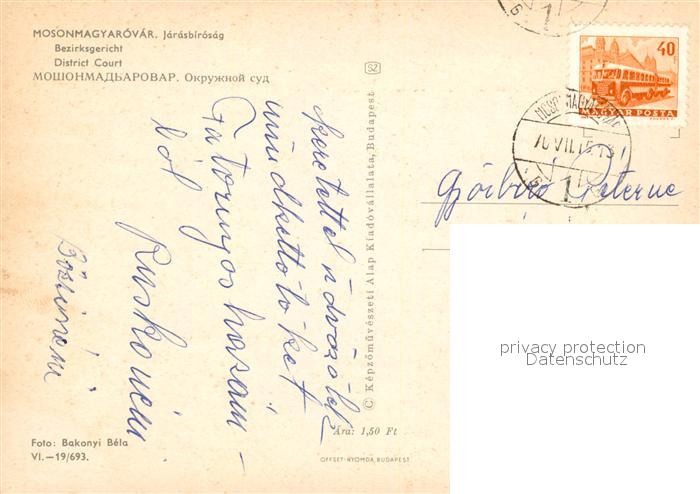 MOSONMAGYARÓVÁR. Járásbíróság
Bezirksgericht
District Court
МОШОНМАДЬАРОВАР. Окружной суд
SZ
40 F
MAGYAR POSTA
1
Győrbiró Péterné
szeretettel üdvözöl
mindkettőtöket
Ruskóné
Foto: Bakonyi Béla
VI.—19/693.
© Képzőművészeti Alap Kiadóvállalata, Budapest
Ára: 1,50 Ft
OFFSET-NYOMDA BUDAPEST
privacy protection
Datenschutz